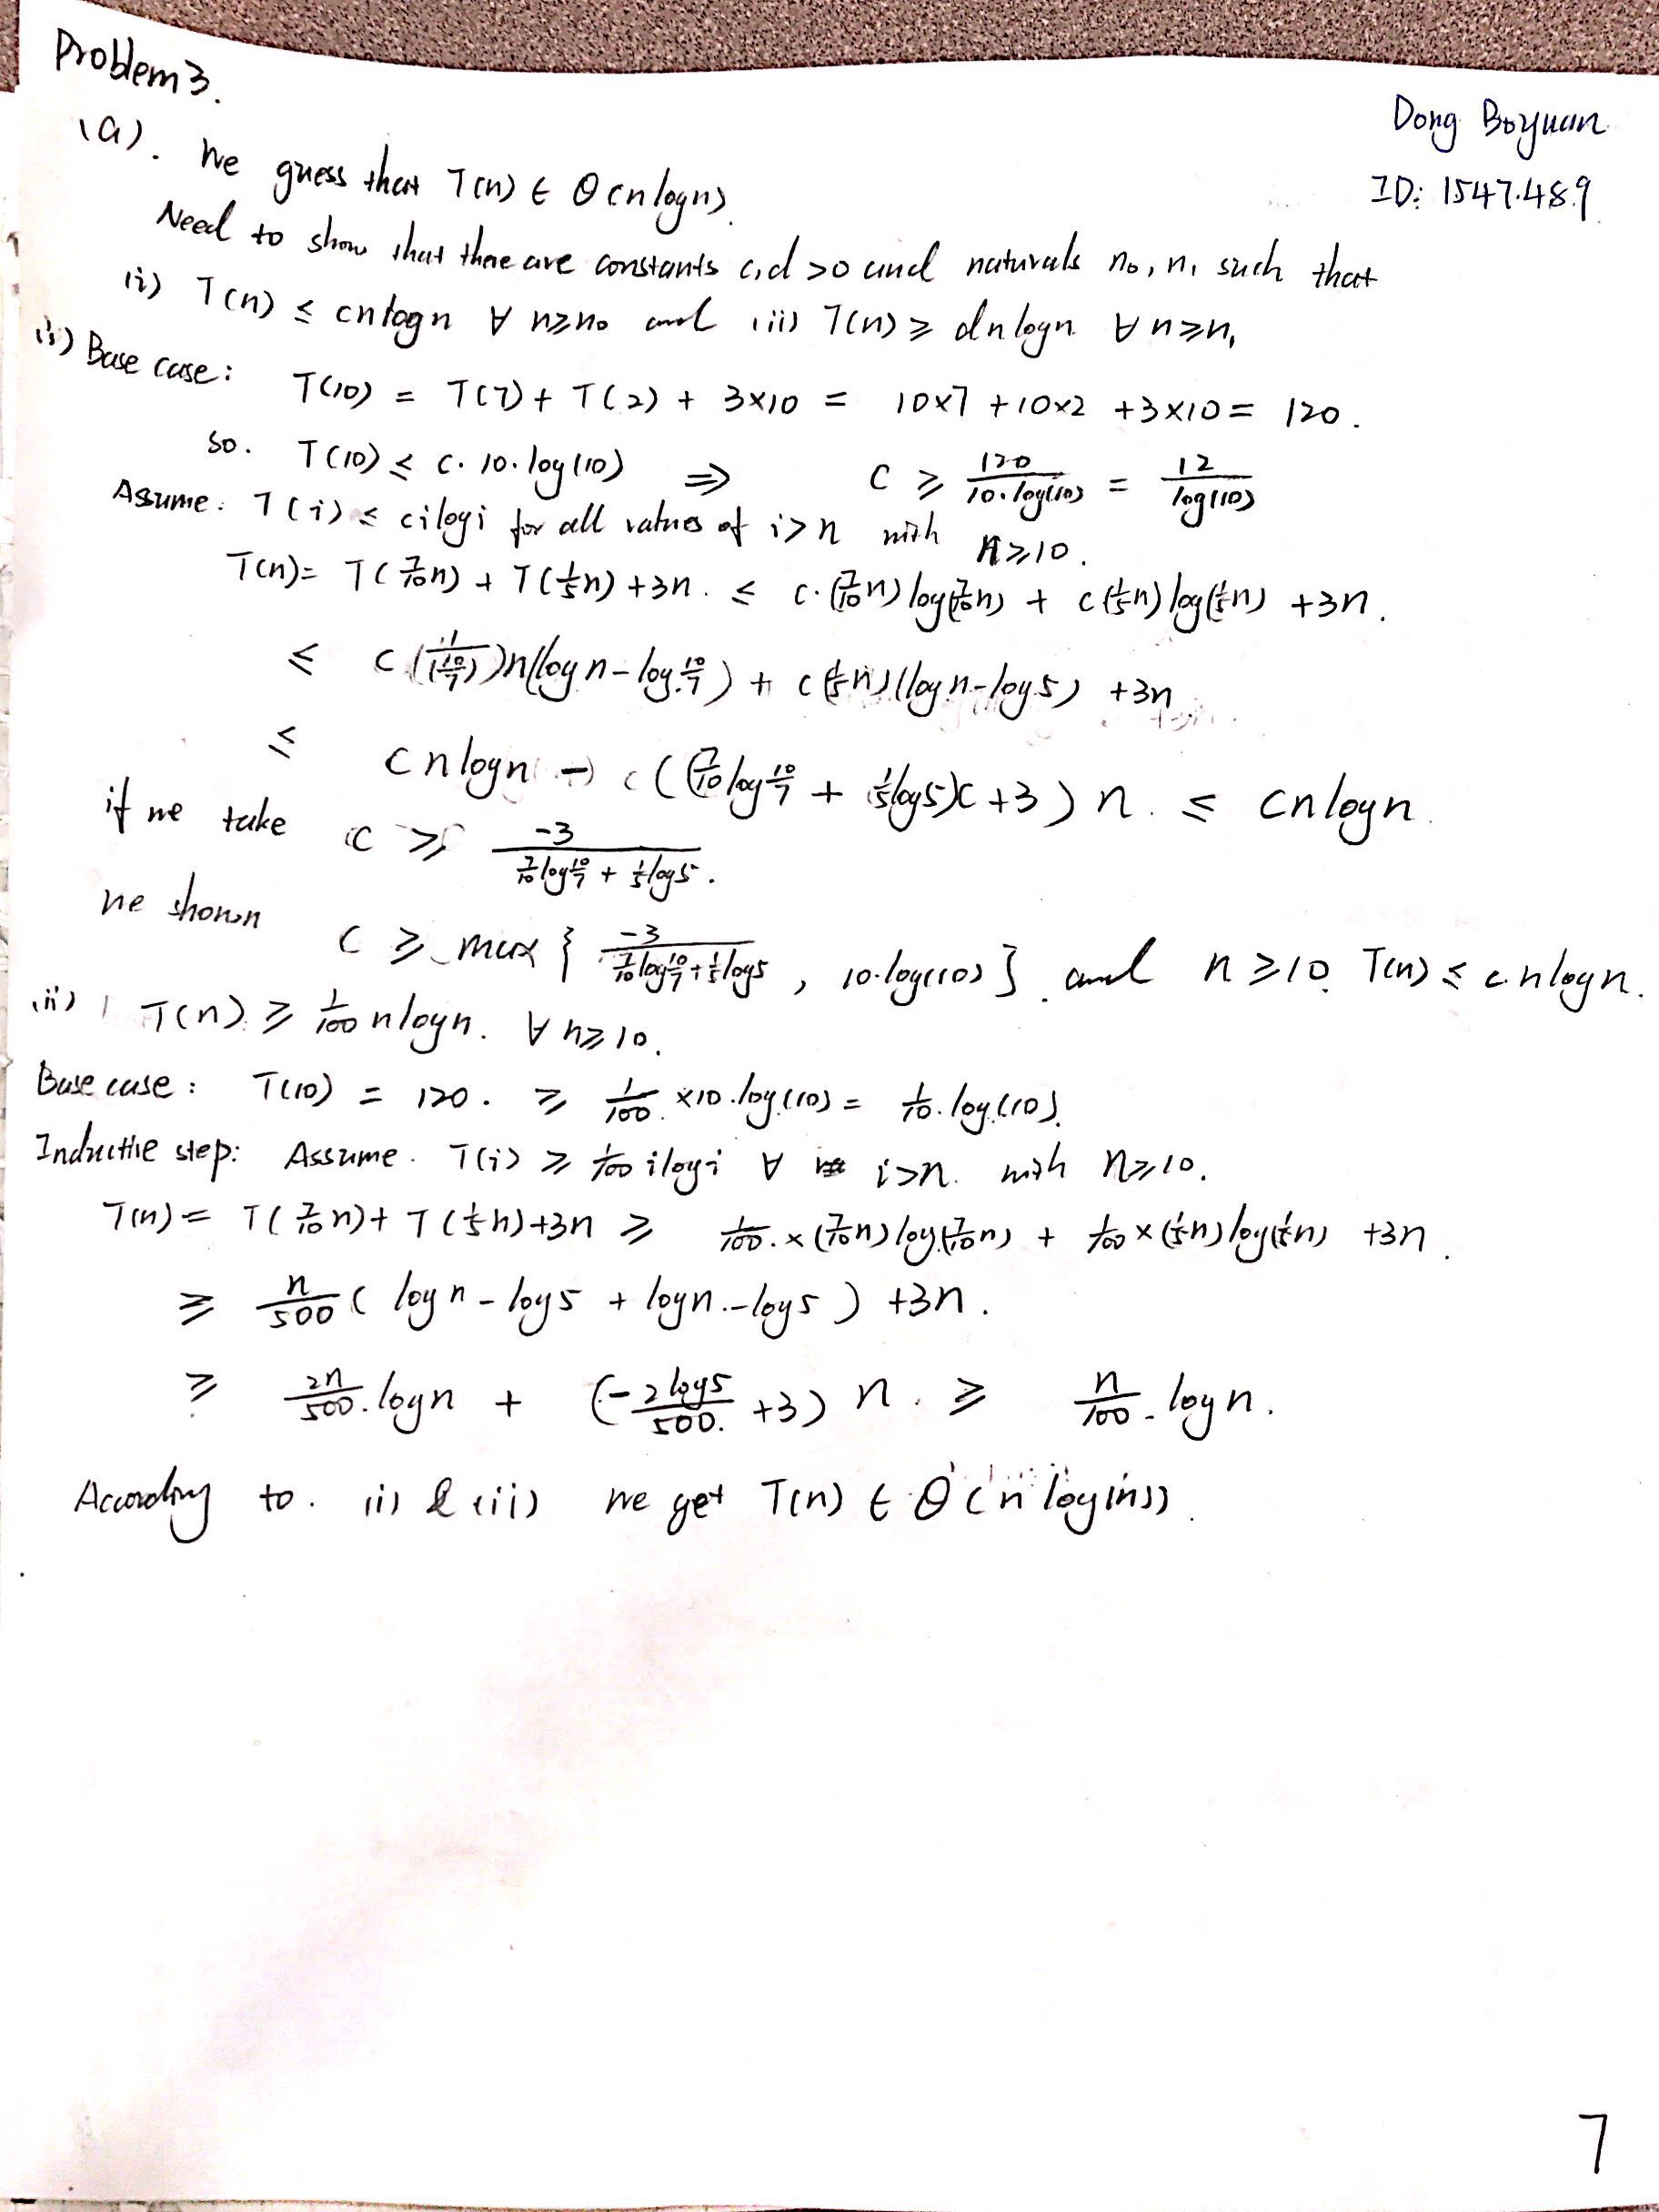 Problem 3.
Dong Boyuan
ID: 1547489
(a). We guess that T(n) ∈ Θ(nlogn)
Need to show that there are constants c,d >0 and naturals n₀, n₁ such that
(i) T(n) ≤ cnlogn ∀ n≥n₀ and (ii) T(n) ≥ dnlogn ∀ n≥n₁
(i) Base case: T(10) = T(7) + T(2) + 3×10 = 10×7 + 10×2 + 3×10 = 120.
so. T(10) ≤ c·10·log(10) ⇒ c ≥ 120/(10·log(10)) = 12/log(10)
Assume: T(i) ≤ cilogi for all values of i>n with n≥10.
T(n) = T(7/10 n) + T(1/5 n) + 3n. ≤ c·(7/10 n)log(7/10 n) + c(1/5 n)log(1/5 n) + 3n.
≤ c(1/(10/7))n(logn - log 10/7) + c(1/5 n)(logn - log5) + 3n
≤ cnlogn - ((7/10 log 10/7 + 1/5 log5)c + 3)n. ≤ cnlogn.
if we take c ≥ -3/(7/10 log 10/7 + 1/5 log5).
we shown c ≥ max { -3/(7/10 log 10/7 + 1/5 log5), 10·log(10) }. and n≥10. T(n) ≤ c·nlogn.
(ii) T(n) ≥ 1/100 nlogn. ∀ n≥10.
Base case: T(10) = 120. ≥ 1/100 ×10·log(10) = 1/10·log(10).
Inductive step: Assume. T(i) ≥ 1/100 ilogi ∀ i>n. with n≥10.
T(n) = T(7/10 n) + T(1/5 n) + 3n ≥ 1/100 × (7/10 n)log(7/10 n) + 1/100 × (1/5 n)log(1/5 n) + 3n.
≥ n/500 (logn - log5 + logn - log5) + 3n.
≥ 2n/500·logn + (-2log5/500 + 3)n. ≥ n/100·logn.
According to. (i) & (ii) we get T(n) ∈ Θ(nlog(n)).
7